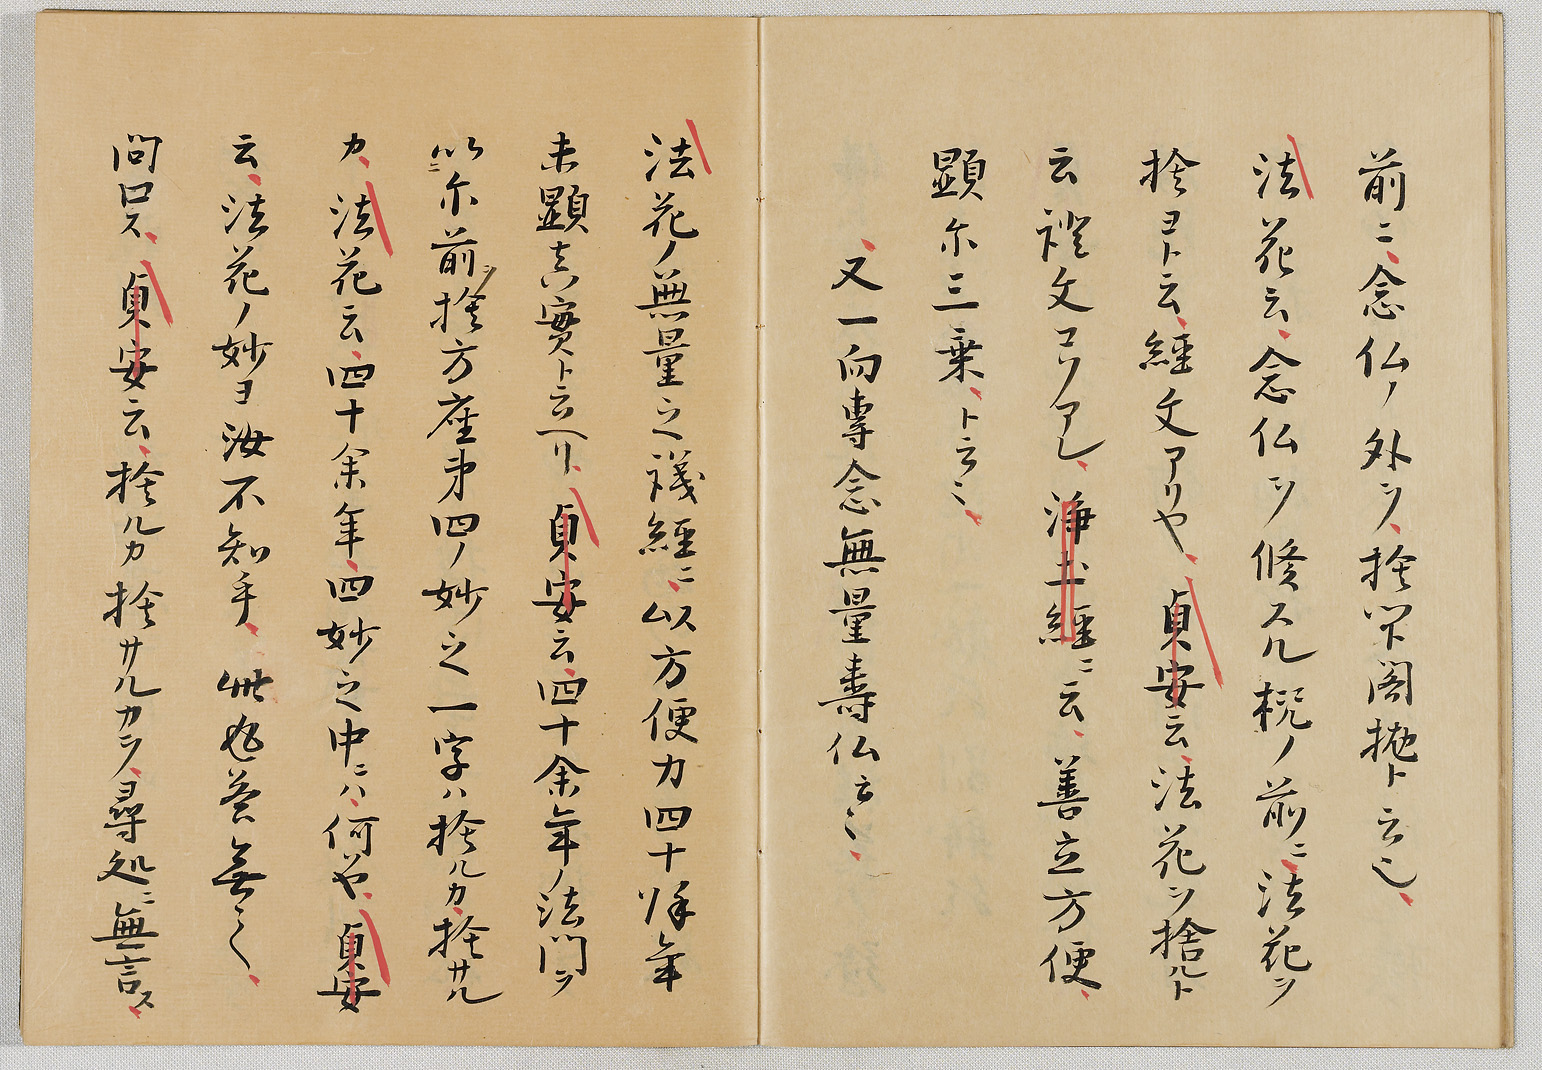 前ニ、念仏ノ外ヲ、捨閉閣抛ト云也、
法花云、念仏ヲ修スル機ノ前ニ、法花ヲ
捨ヨト云、経文アリヤ、貞安云、法花ヲ捨ルト
云證文コソアレ、浄土経ニ云、善立方便、
顕尓三乗、ト云々、
又一向専念無量寿仏云々、
法花ノ無量之議経ニ、以方便力四十余年
未顕真實ト云ヘリ、貞安云、四十余年ノ法門ヲ
以尓前ヲ捨方座第四ノ妙之一字ハ捨ルカ、捨サル
カ、法花云、四十余年、四妙之中ニハ、何や、貞安
云、法花ノ妙ヨ汝不知乎、此返答無之、
閉口ス、貞安云、捨ルカ捨サルカヲ、尋処ニ無言ス、